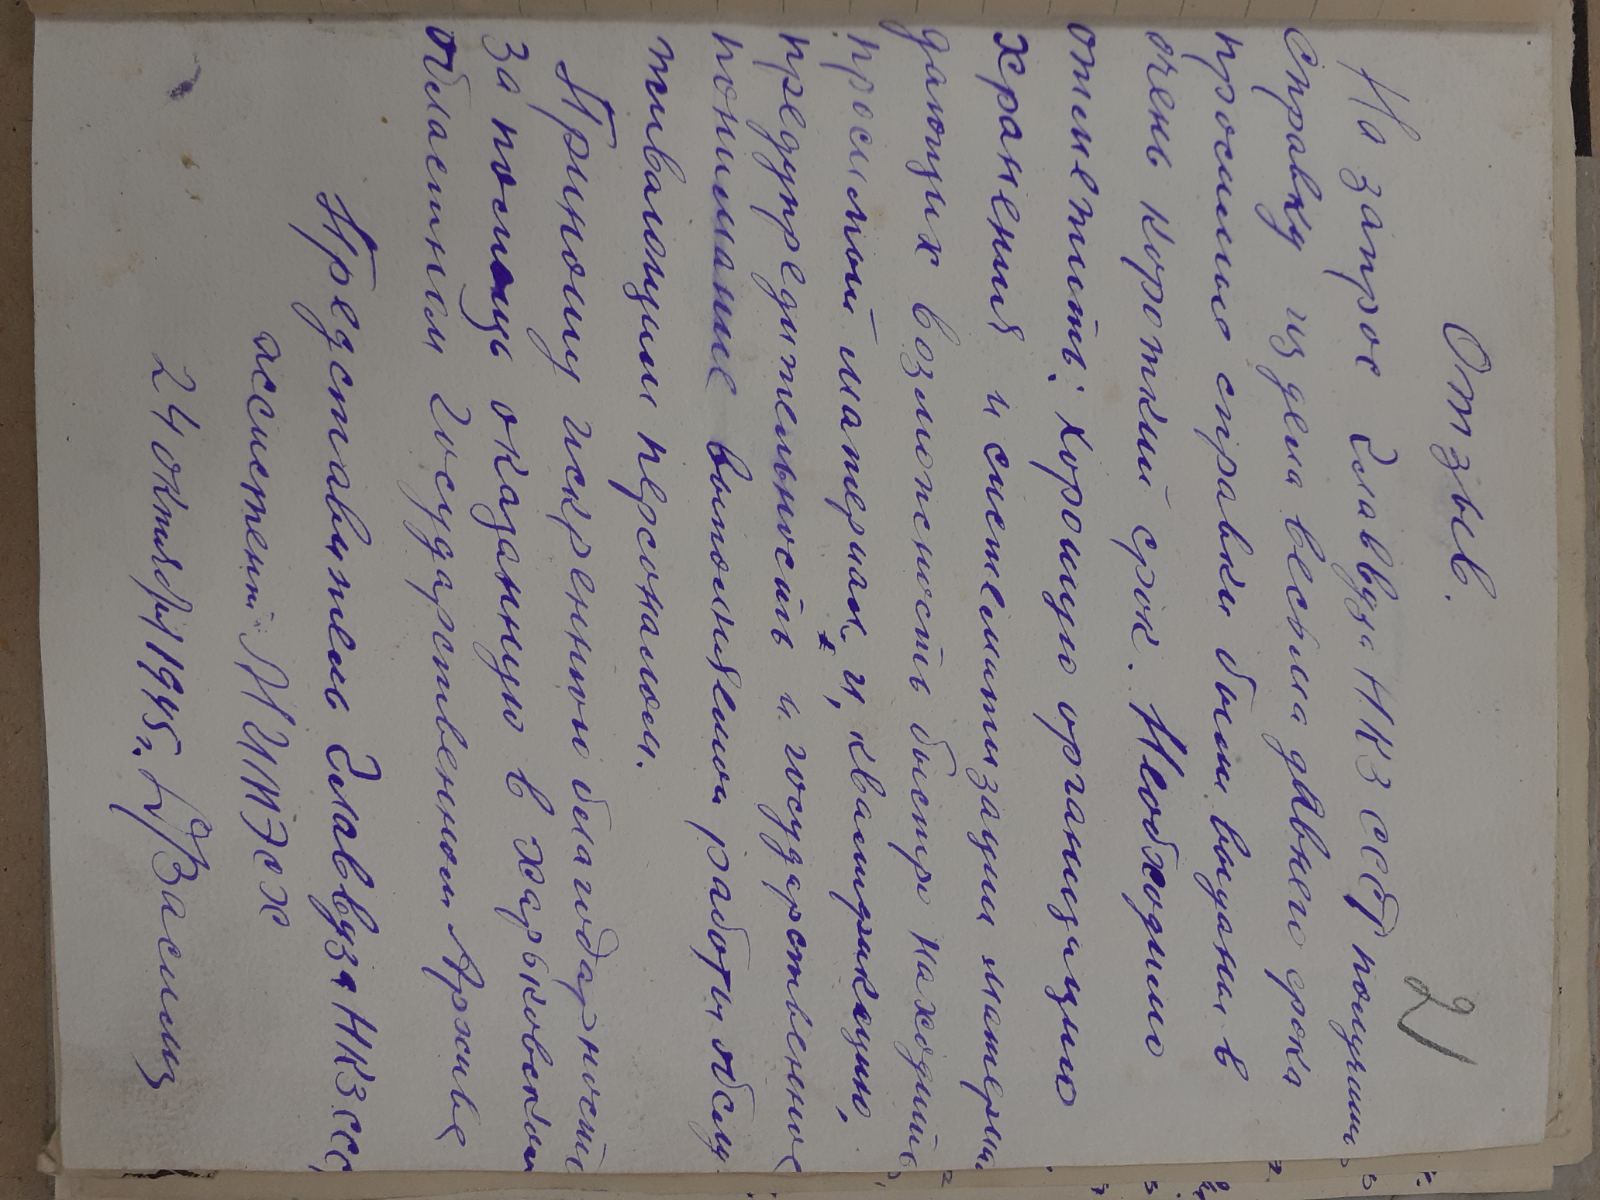 Отзыв.
2)
На запрос Главвуза НКЗ СССР получили
справку из дела весьма давнего срока
просимые справки были выданы в
очень короткий срок. Необходимо
отметить: хорошую организацию
хранения и систематизации материа
дающих возможность быстро находить
просимый материал, и, квалификацию,
предупредительность и государственное
понимание выполняемой работы обслу
живающим персоналом.
Приношу искреннюю благодарность
за помощь оказанную в Харьковском
областном Государственном Архиве
Представитель Главвуза НКЗ ССС
ассистент
24 октября 1945 г.